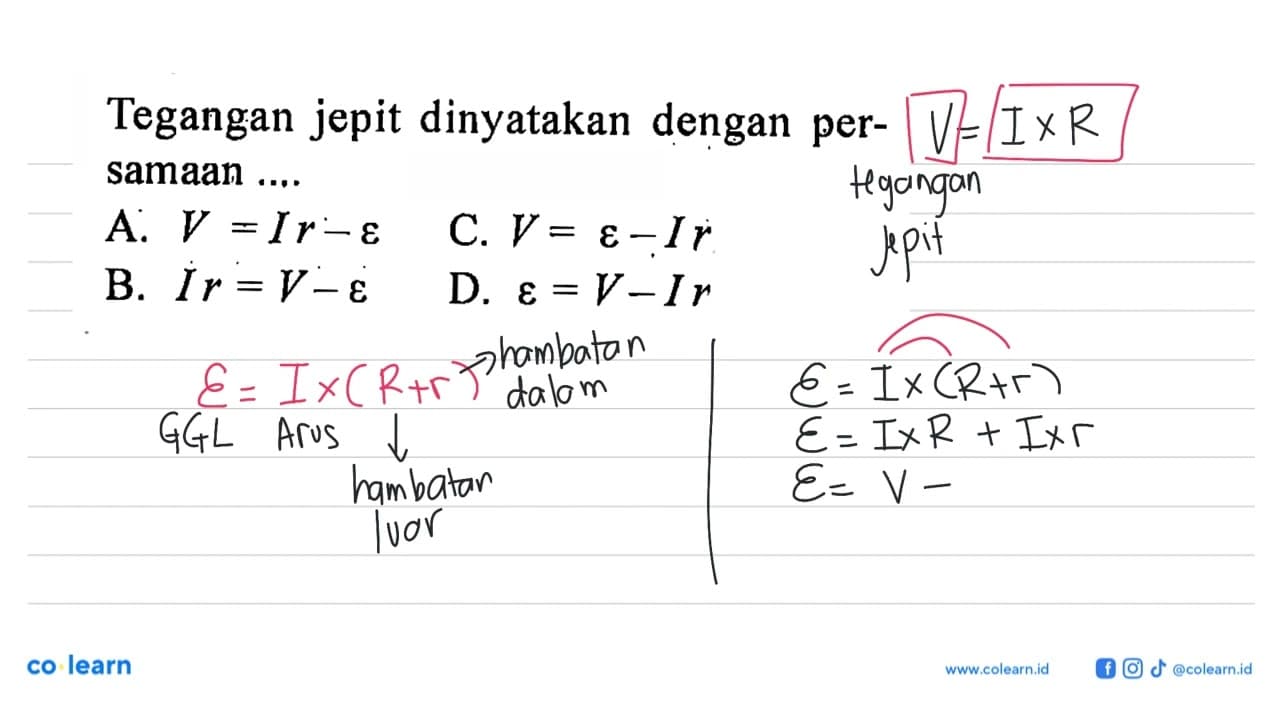 Tegangan jepit dinyatakan dengan per-
samaan ....
A. V = Ir - ε C. V = ε - Ir
B. Ir = V - ε D. ε = V - Ir
V = I x R
tegangan
jepit
ε = I x (R+r) → hambatan
dalam
GGL Arus ↓
hambatan
luar
ε = I x (R+r)
ε = I x R + I x r
ε = V -
co learn
www.colearn.id @colearn.id